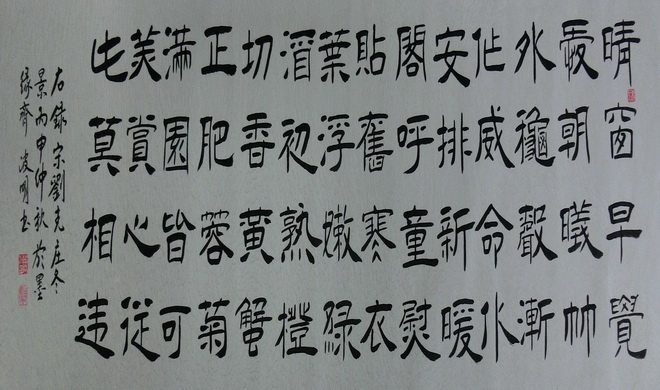 晴窗早覺
愛朝曦竹
外龝聲漸
作威命仆
安排新暖
閣呼童熨
貼舊寒衣
葉浮嫩綠
酒初熟橙
切香黄蟹
正肥蓉菊
滿園皆可
羡賞心從
此莫相违
右錄宋劉克庄冬
景丙申仲秋於墨
緣齊 凌明书